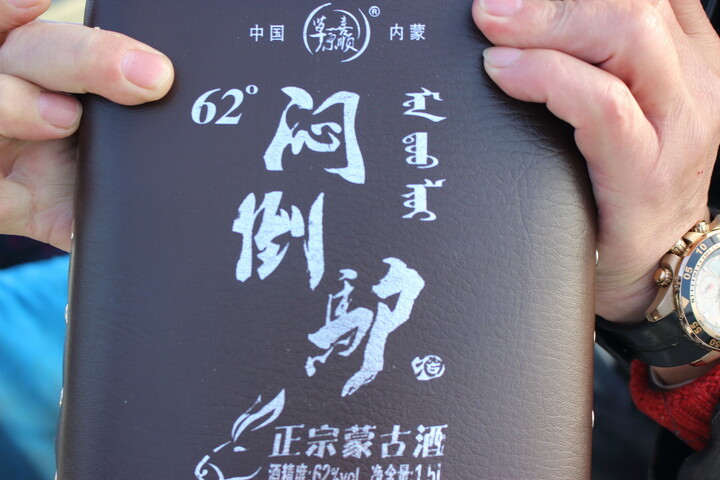 中国 草原一麦顺 ® 内蒙
62°
闷倒驴
正宗蒙古酒
酒精度:62%vol 净含量:1.5l
05
10